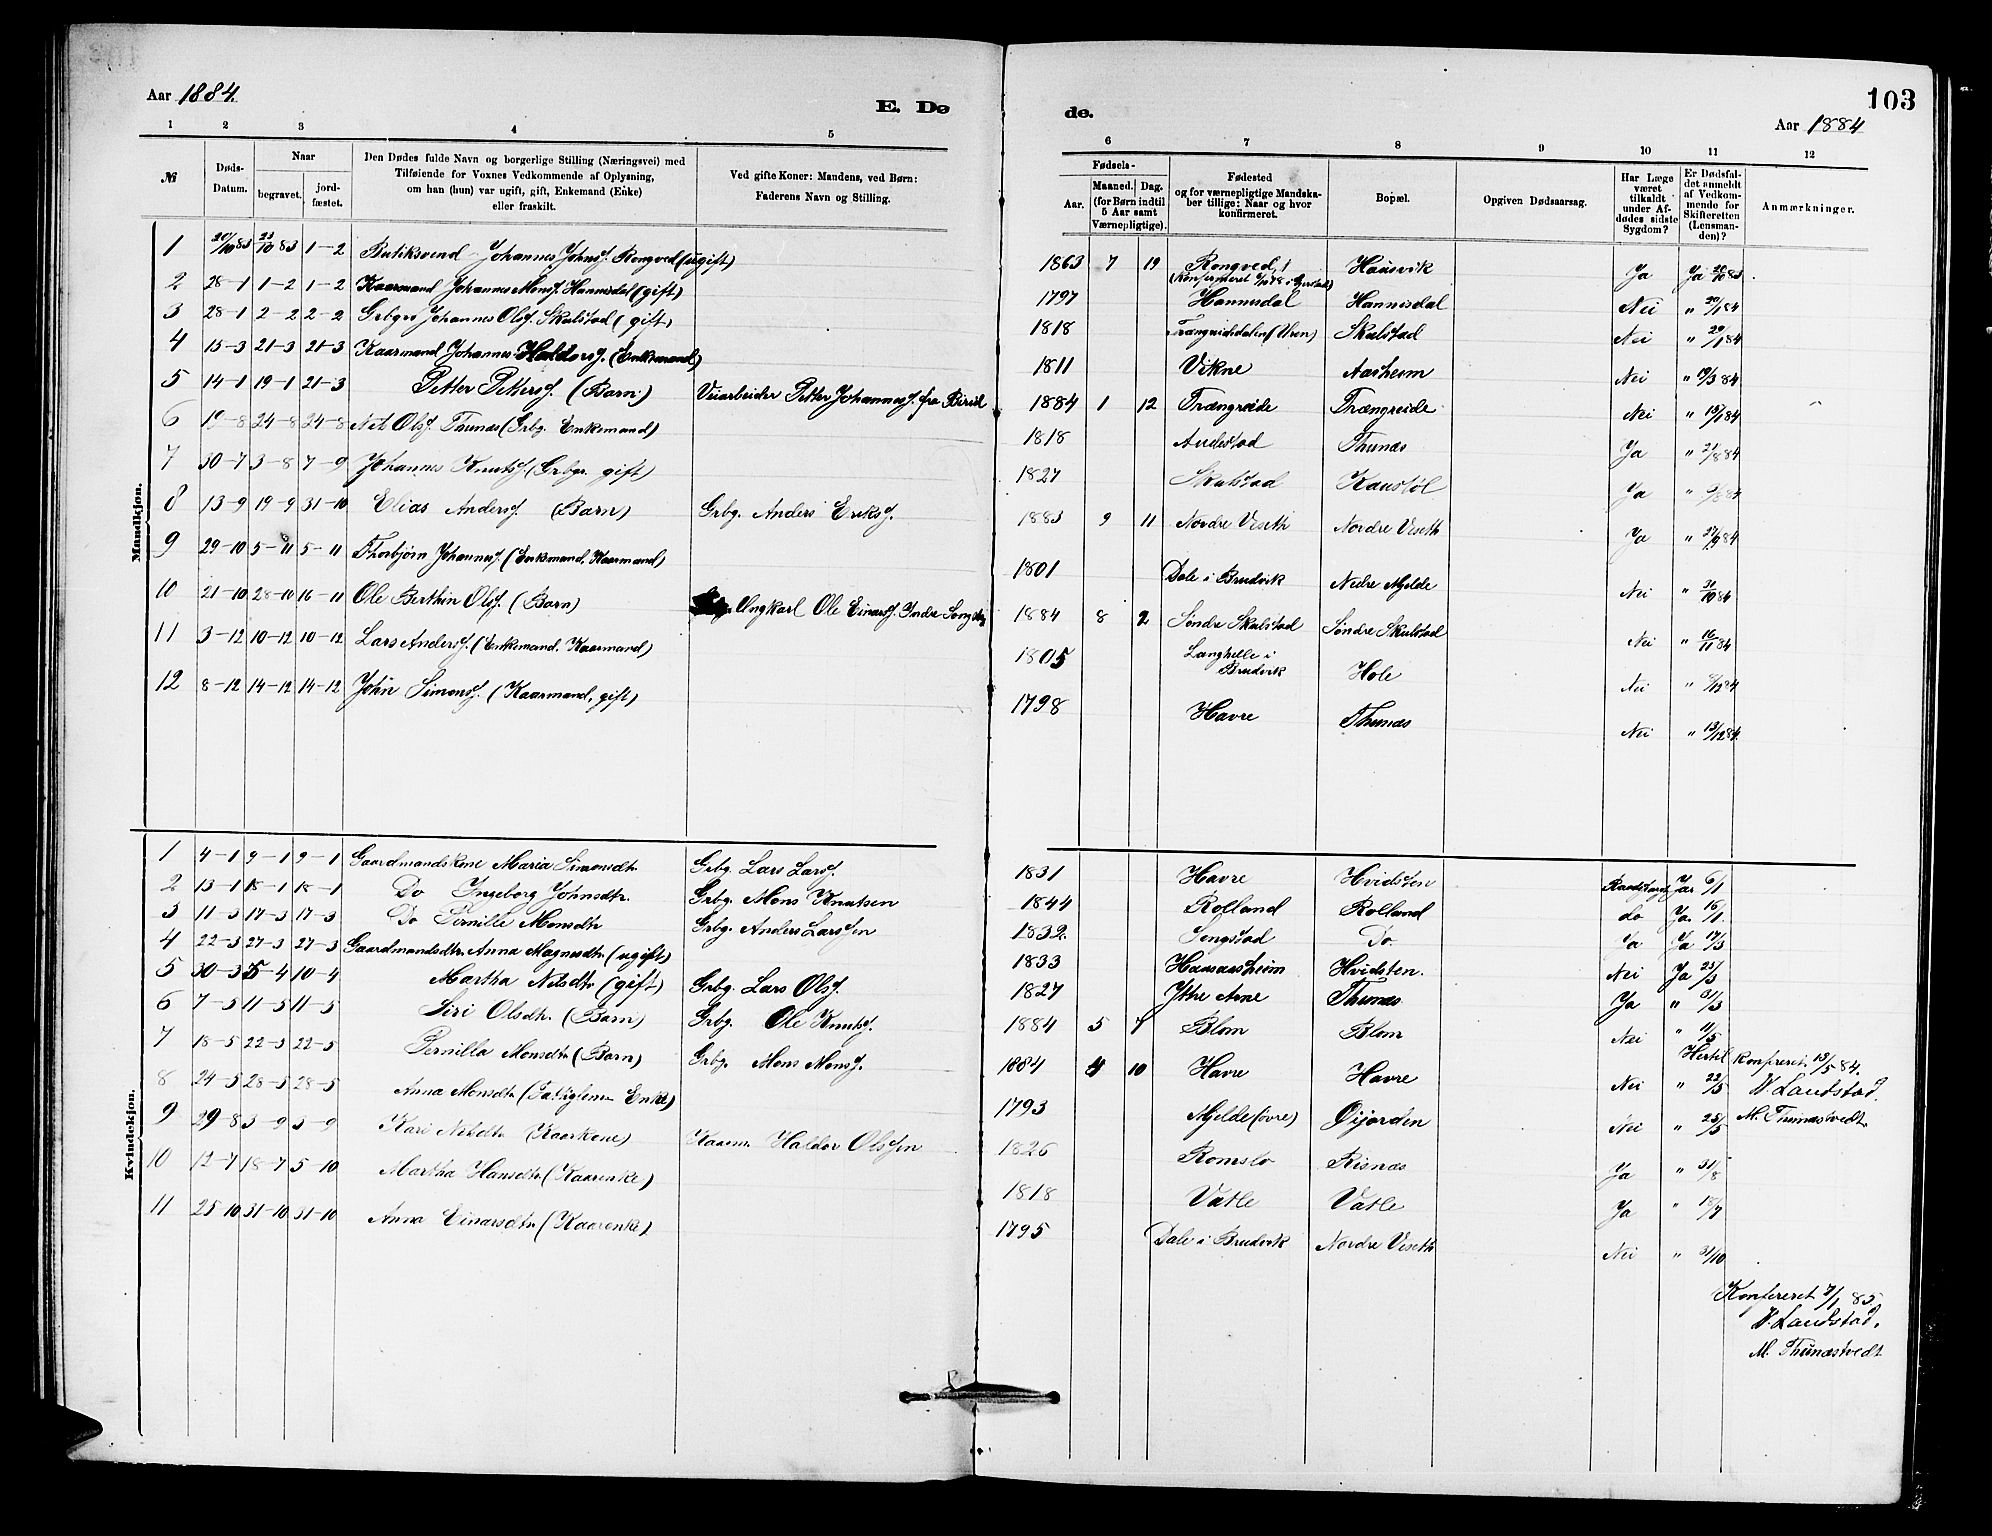 Aar 1884.
E. Dø
1 2 3 4 5
№
Døds-Datum.
Naar
begravet.
jordfæstet.
Den Dødes fulde Navn og borgerlige Stilling (Næringsvei) med
Tilføiende for Voxnes Vedkommende af Oplysning,
om han (hun) var ugift, gift, Enkemand (Enke)
eller fraskilt.
Ved gifte Koner: Mandens, ved Børn:
Faderens Navn og Stilling.
Mandkjøn.
1 20/10 83 23/10 83 1-2 Butiksvend Johannes Johnss. Rongved (ugift)
2 28-1 1-2 1-2 Kaarmand Johannes Monss. Hannisdal (gift)
3 28-1 2-2 2-2 Grbgr. Johannes Olss. Skulstad (gift)
4 15-3 21-3 21-3 Kaarmand Johannes Haldorss. (Enkemand)
5 14-1 19-1 21-3 Petter Petterss. (Barn) Veiarbeider Petter Johanness. fra Birid
6 19-8 24-8 24-8 Nils Olss. Thunæs (Grbg. Enkemand)
7 30-7 3-8 7-9 Johannes Knutss. (Grbgr. gift)
8 13-9 19-9 31-10 Elias Anderss. (Barn) Grbg. Anders Eriks.
9 29-10 5-11 5-11 Thorbjørn Johanness. (Enkemand, Kaarmand)
10 21-10 28-10 16-11 Ole Berthin Olss. (Barn) Ungkarl Ole Einarss. Indre
11 3-12 10-12 10-12 Lars Anderss. (Enkemand, Kaarmand)
12 8-12 14-12 14-12 John Simonss. (Kaarmand, gift)
Kvindekjøn.
1 4-1 9-1 9-1 Gaardmandskone Maria Simonsdtr. Grbg. Lars Larss.
2 13-1 18-1 18-1 Do Ingeborg Johnsdtr. Grbg. Mons Knutsen
3 11-3 17-3 17-3 Do Pernille Monsdtr Grbg. Anders Larssen
4 22-3 27-3 27-3 Gaardmandsdtr. Anna Magnesdtr (ugift)
5 30-3 5-4 10-4 Martha Nilsdtr (gift) Grbg. Lars Olss.
6 7-5 11-5 11-5 Siri Olsdtr. (Barn) Grbg. Ole Knutss.
7 18-5 22-5 22-5 Pernilla Monsdtr (Barn) Grbg. Mons Monss.
8 24-5 28-5 28-5 Anna Monsdtr (Fattiglem Enke)
9 29-8 3-9 3-9 Kari Nilsdtr (Kaarkone) Kaarm. Haldor Olssen
10 12-7 18-7 5-10 Martha Hansdtr (Kaarenke)
11 25-10 31-10 31-10 Anna Einarsdtr (Kaarenke)
103
de.
Aar 1884
6 7 8 9 10 11 12
Fødsels-
Aar.
Maaned. Dag.
(for Børn indtil
5 Aar samt
Værnepligtige).
Fødested
og for værnepligtige Mandskaber tillige: Naar og hvor
konfirmeret.
Bopæl.
Opgiven Dødsaarsag.
Har Læge
været
tilkaldt
under Afdødes sidste
Sygdom?
Er Dødsfaldet anmeldt
af Vedkommende for
Skifteretten
(Lensmanden)?
Anmærkninger.
1863 7 19 Rongved Hausvik Ja Ja 20/10 83
1797 Hannisdal Hannisdal Nei " 30/1 84
1818 Trængreiddalen (Uren) Skulstad Nei " 29/1 84
1811 Vikne Aasheim Nei " 19/3 84
1884 1 12 Trængreide Trængreide Nei " 15/1 84
1818 Andestad Thunæs Ja " 21/8 84
1827 Skulstad Kaustøl Ja " /8 84
1883 9 11 Nordre Viseth Nordre Viseth Ja " 27/9 84
1801 Dale i Brudvik Nedre Mjelde Nei " 30/10 84
1884 8 2 Søndre Skulstad Søndre Skulstad Nei " 16/11 84
1805 Langhelle i Brudvik Hole Nei " 8/12 84
1798 Havre Thunæs Nei " 13/12 84.
1831 Havre Hvidsten Ja 6/1
1844 Rolland Rolland do Ja 16/1
1832. Sengstad Do Ja Ja 17/3
1833 Hansaasheim Hvidsten. Nei Ja 25/3
1827 Ytre Arne Thunæs Ja " 31/3
1884 5 7 Blom Blom Nei " 11/5
Hertil konfereret 19/5 84.
1884 4 10 Havre Havre Nei " 22/5 V. Landstad.
1793 Mjelde (øvre) Øijorden Nei " 25/5 M. Thunæstvedt.
1826 Romslo Risnæs Ja " 31/8
1818 Vatle Vatle Ja " 18/7
1795 Dale i Brudvik Nordre Viseth Nei " 31/10
Konfereret 7/1 85
V. Landstad.
M. Thunæstvedt